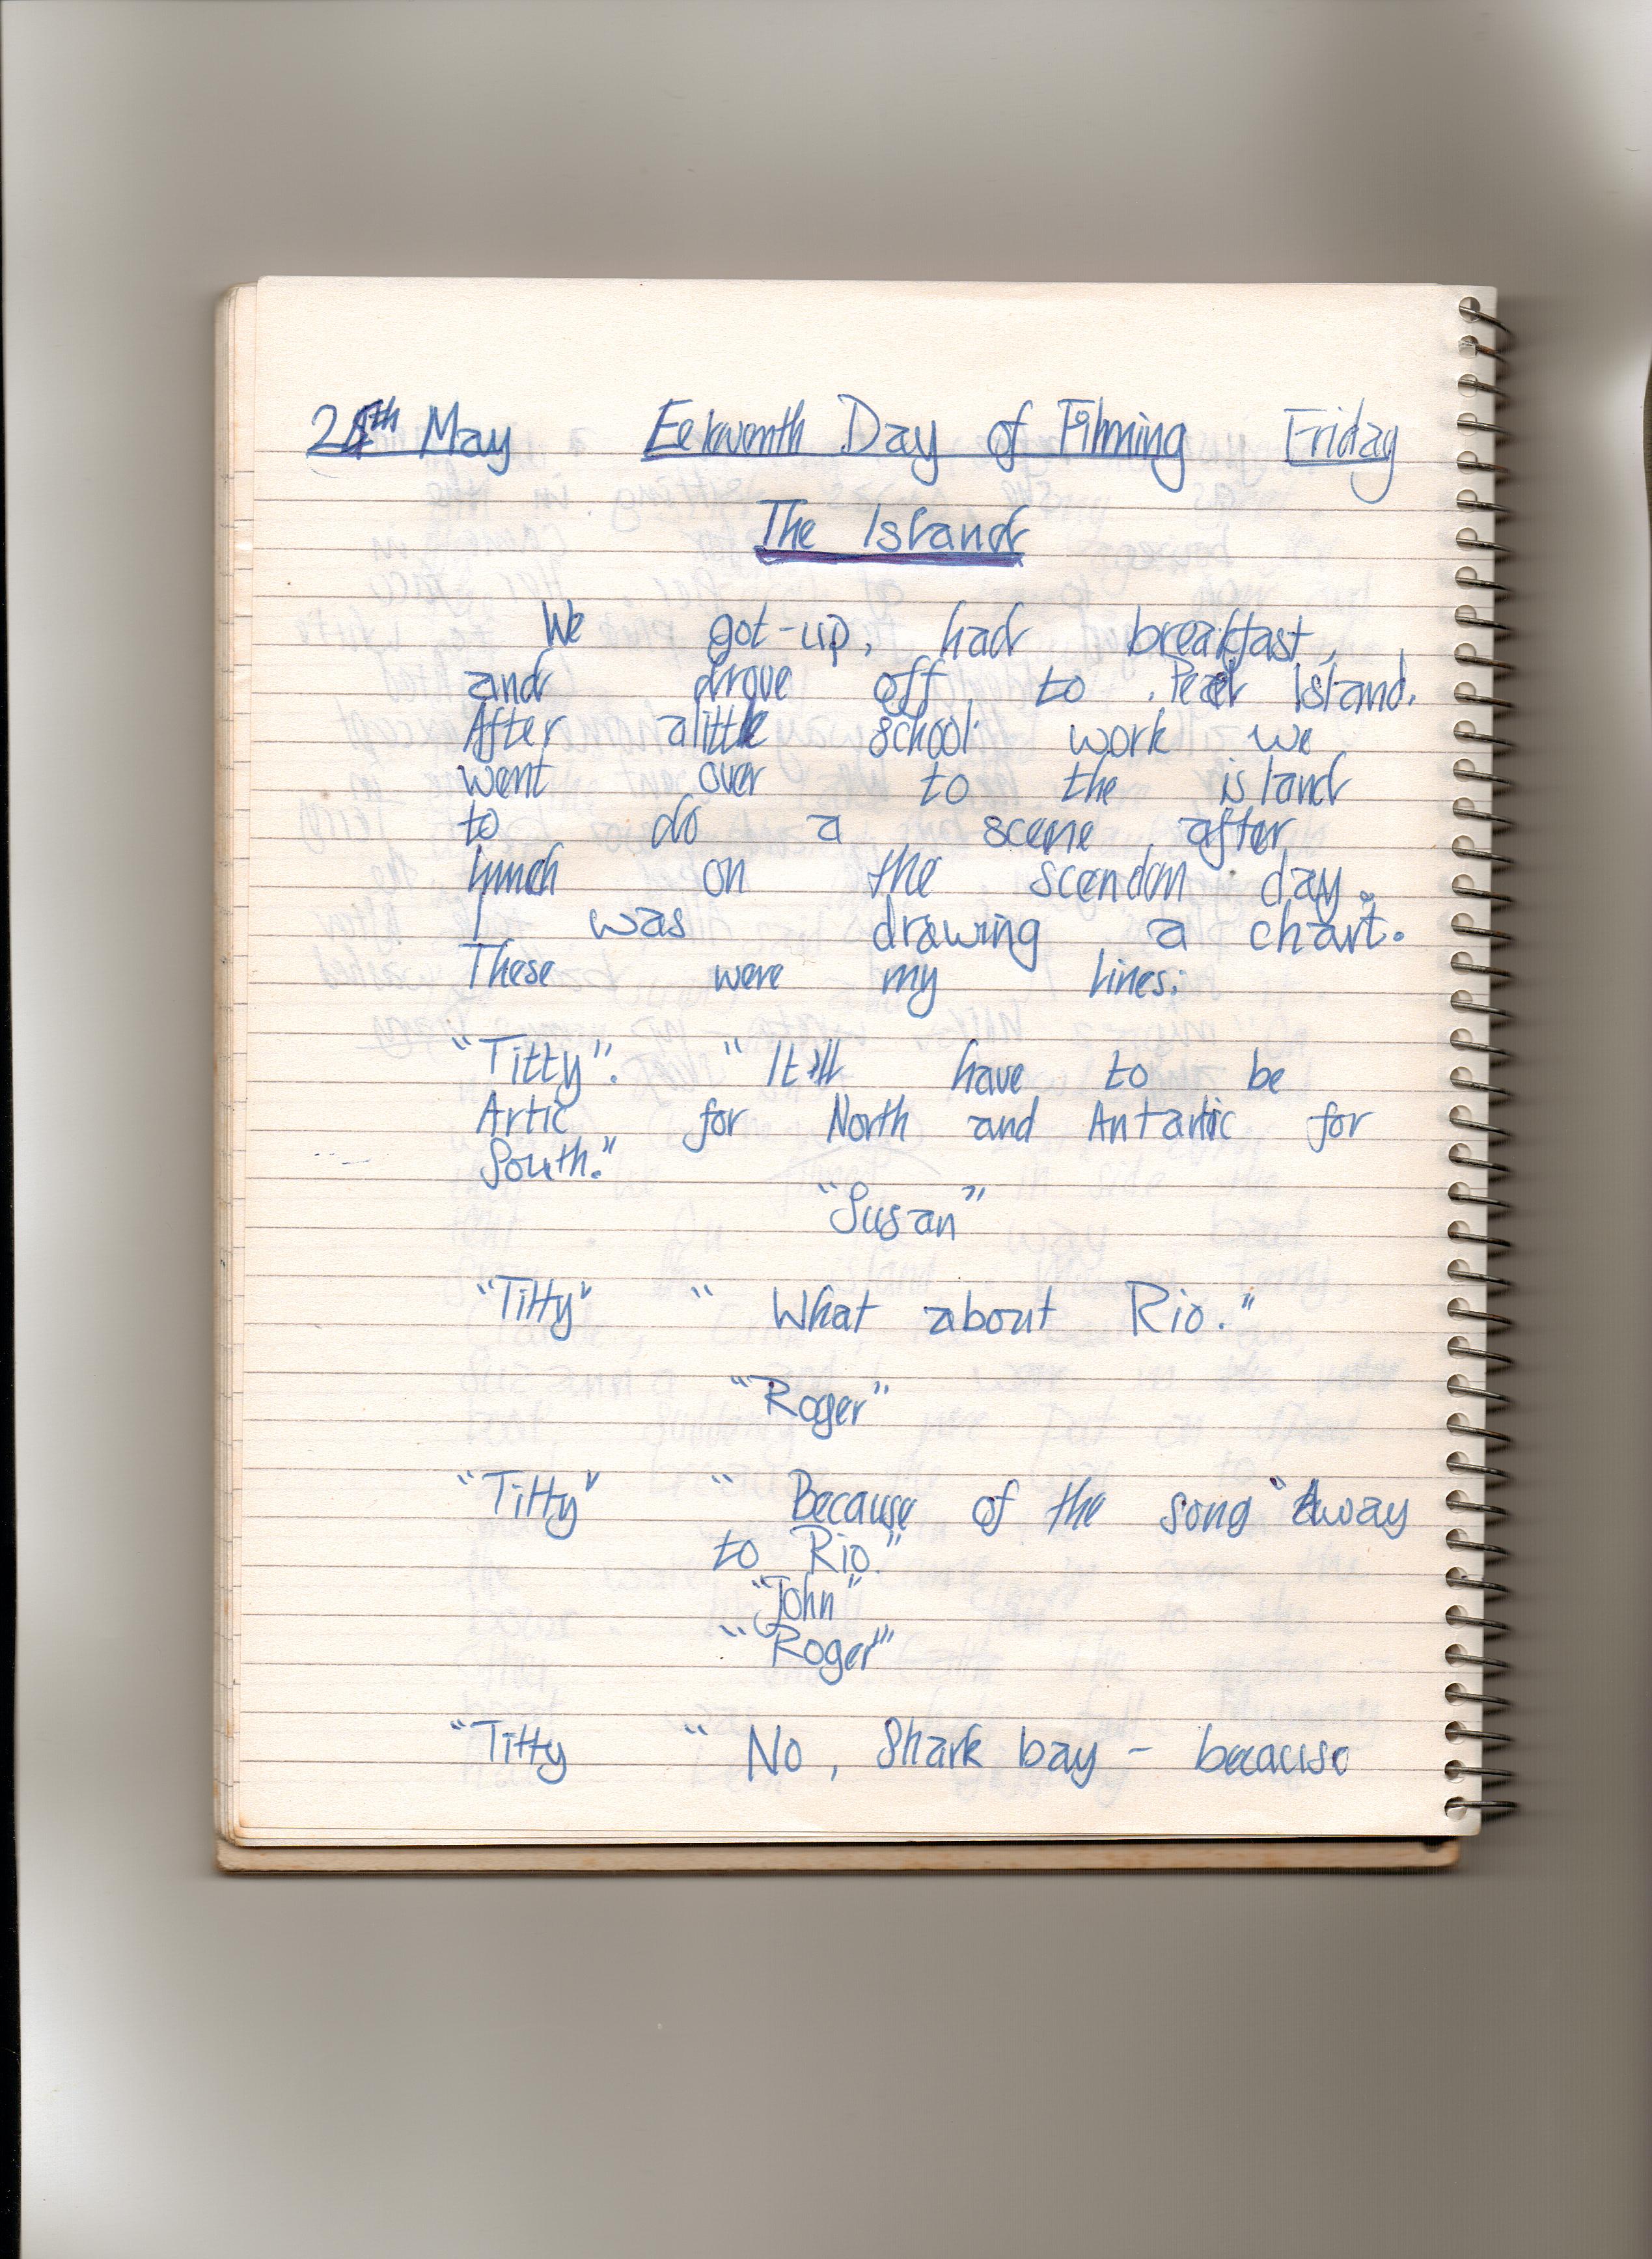 May Eelewenth Day of Filming Friday
The Island
We got-up, had breakfast,
and drove off to Peel Island.
After alittle school work we
went over to the island
to do a scene after
lunch on the scendon day.
I was drawing a chart.
These were my lines:
"Titty". "It'll have to be
Artic for North and Antartic for
South."
"Susan"
"Titty" "What about Rio."
"Roger"
"Titty" "Because of the song "Away
to Rio."
"John"
"Roger"
"Titty "No, Shark bay - because